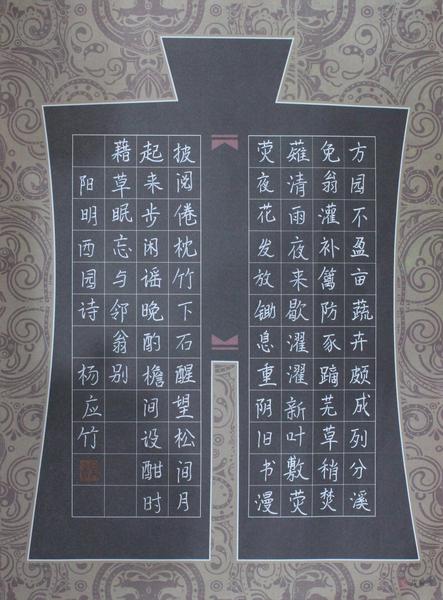 方园不盈亩蔬卉颇成列分溪
免翁灌补篱防豕蹢芜草稍焚
薙清雨夜来歇濯濯新叶敷荧
荧夜花发放锄息重阴旧书漫
披阅倦枕竹下石醒望松间月
起来步闲谣晚酌檐间设酣时
藉草眠忘与邻翁别
阳明西园诗 杨应竹